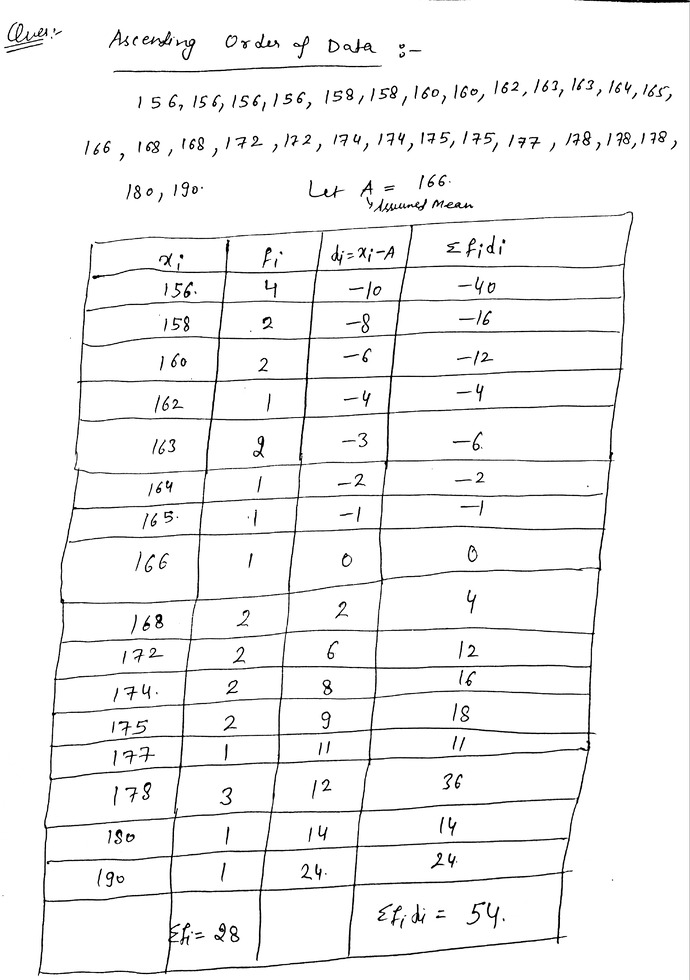 Ques:-
Ascending Order of Data :-
156, 156, 156, 156, 158, 158, 160, 160, 162, 163, 163, 164, 165,
166, 168, 168, 172, 172, 174, 174, 175, 175, 177, 178, 178, 178,
180, 190.
Let A = 166.
↳ Assumed Mean
xi fi di = xi - A Σfidi
156. 4 -10 -40
158 2 -8 -16
160 2 -6 -12
162 1 -4 -4
163 2 -3 -6.
164 1 -2 -2
165. 1 -1 -1
166 1 0 0
168 2 2 4
172 2 6 12
174. 2 8 16
175 2 9 18
177 1 11 11
178 3 12 36
180 1 14 14
190 1 24. 24.
Σfi = 28 Σfidi = 54.